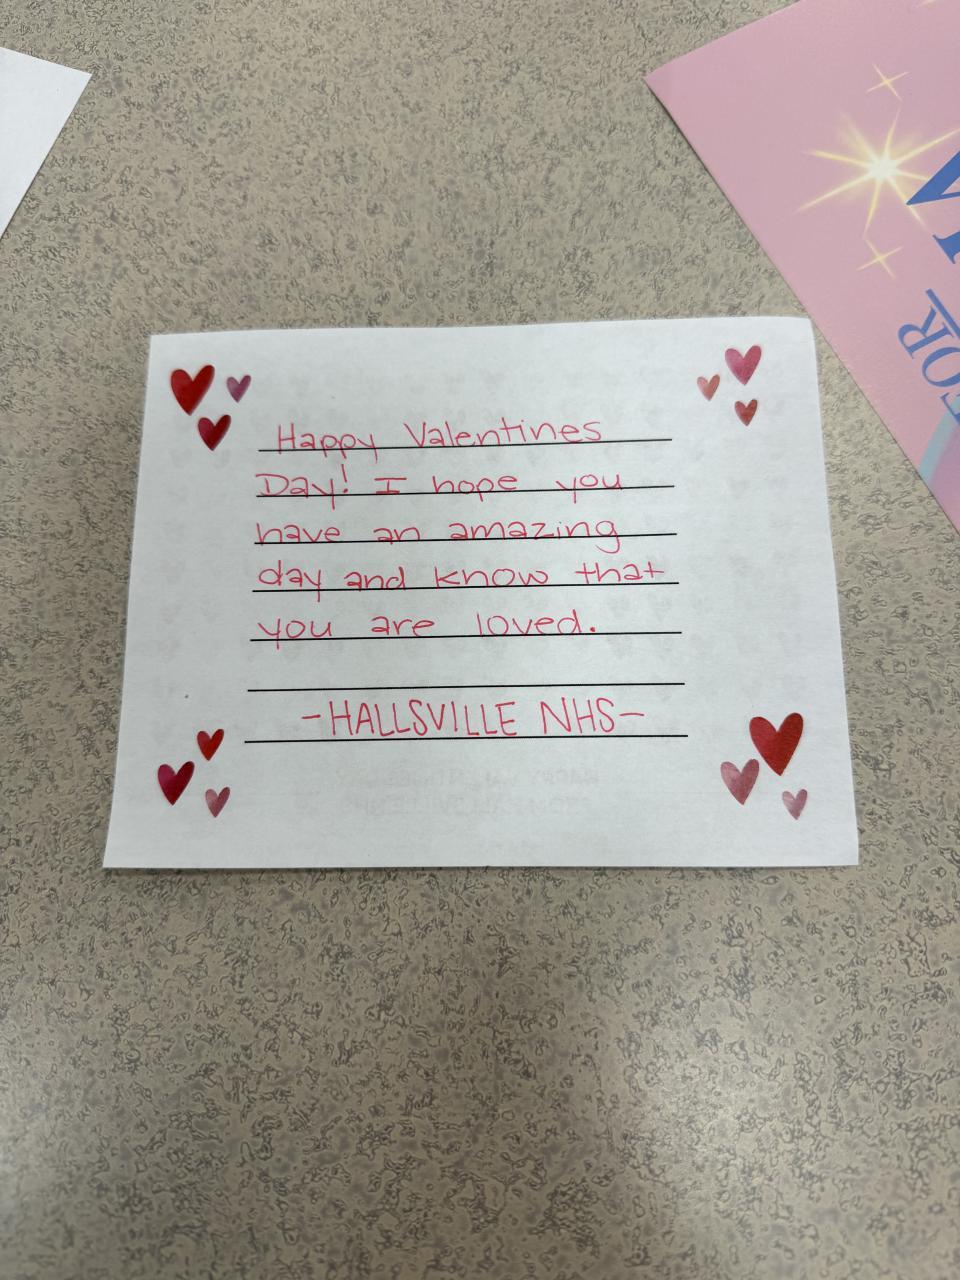 Happy Valentines
Day! I hope you
have an amazing
day and know that
you are loved.
-HALLSVILLE NHS-
FOR